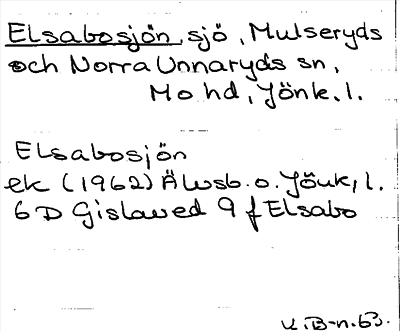 Elsabosjön, sjö, Mulseryds
och Norra Unnaryds sn,
Mo hd, Jönk. l.
Elsabosjön
ek (1962) Älvsb. o. Jönk, l.
6D Gislaved 9 f Elsabo
K.B-n. 63.